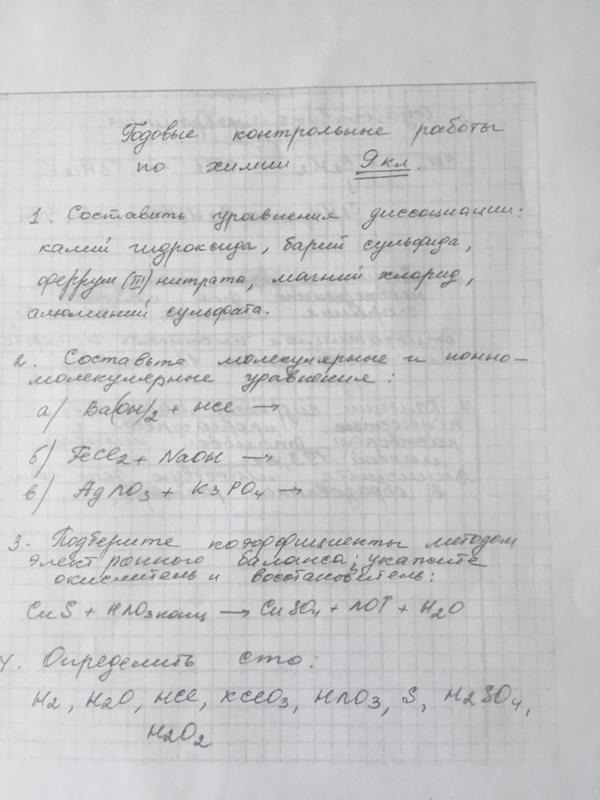 Годовые контрольные работы
по химии 9 кл.
1. Составить уравнения диссоциации:
калий гидроксида, барий сульфида,
феррум (III) нитрата, магний хлорид,
алюминий сульфата.
2. Составьте молекулярные и ионно-
молекулярные уравнения:
а) Ba(OH)2 + HCl →
б) FeCl2 + NaOH →
в) AgNO3 + K3PO4 →
3. Подберите коэффициенты методом
электронного баланса; укажите
окислитель и восстановитель:
CuS + HNO3 конц → CuSO4 + NO↑ + H2O
4. Определить сто:
H2, H2O, HCl, KClO3, HNO3, S, H2SO4,
H2O2